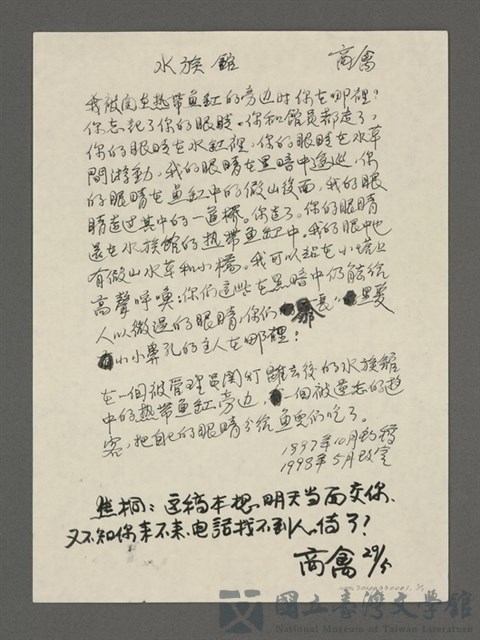 水族館 商禽
我被関在热带鱼缸的旁边时你在哪裡?
你忘記了你的眼睛。你和館員都走了,
你的眼睛在水缸裡,你的眼睛在水草
間游動,我的眼睛在黑暗中逡巡,你
的眼睛在鱼缸中的假山後面,我的眼
睛走过其中的一道橋。你走了。你的眼睛
還在水族館的热带鱼缸中。我的眼中也
有假山水草和小橋。我可以站在小塔上
高聲呼喚:你們這些在黑暗中仍能给
人以微温的眼睛,你們
小小鼻孔的主人在哪裡?
在一個被管理員関灯離去後的水族館
中的热带鱼缸旁边,一個被遺忘的遊
客,把自己的眼睛分给鱼兒們吃了。
1997年10月初稿
1998年5月改定
焦桐:这稿本想明天当面交你,
又不知你来不来,电話找不到人。
商禽 29/5
國立臺灣文學館
National Museum of Taiwan Literature